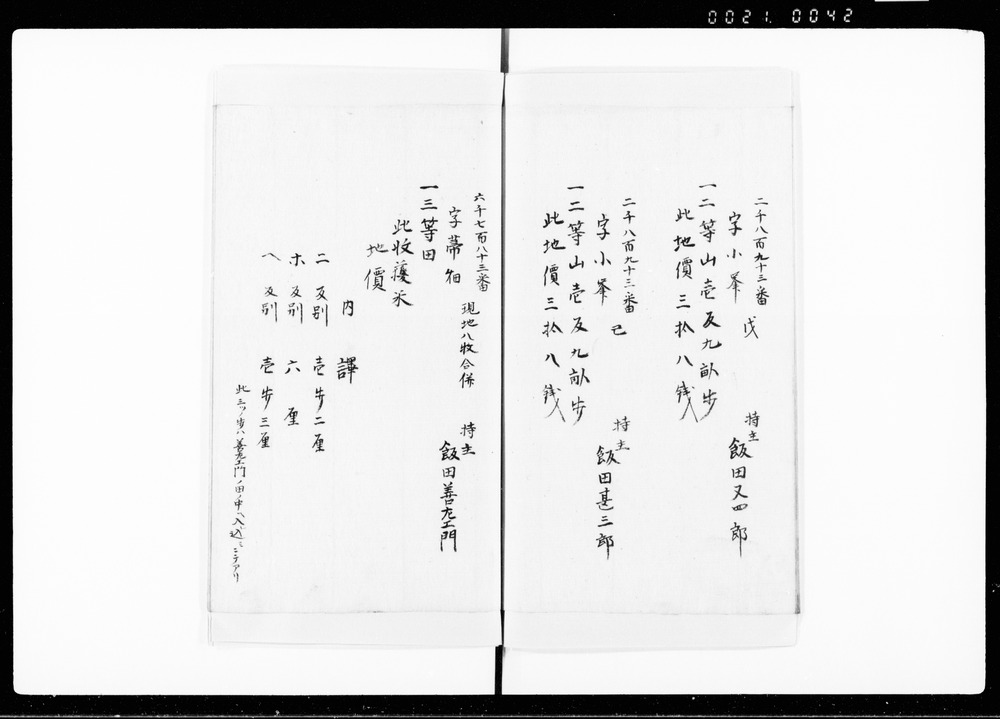 0021. 0042
二千八百九十三番
字小峯 戊
持主 飯田又四郎
一二等山壱反九畝歩
此地價三拾八銭
二千八百九十三番
字小峯 己
持主 飯田甚三郎
一二等山壱反九畝歩
此地價三拾八銭
六千七百八十三番
字蔕畑 現地八枚合併
持主 飯田善左エ門
一三等田
此收穫米
地價
内譯
ニ 反別 壱歩二厘
ホ 反別 六厘
ヘ 反別 壱歩三厘
此三ツノ歩ハ善左エ門ノ田ノ中ヘ入込ミニテアリ